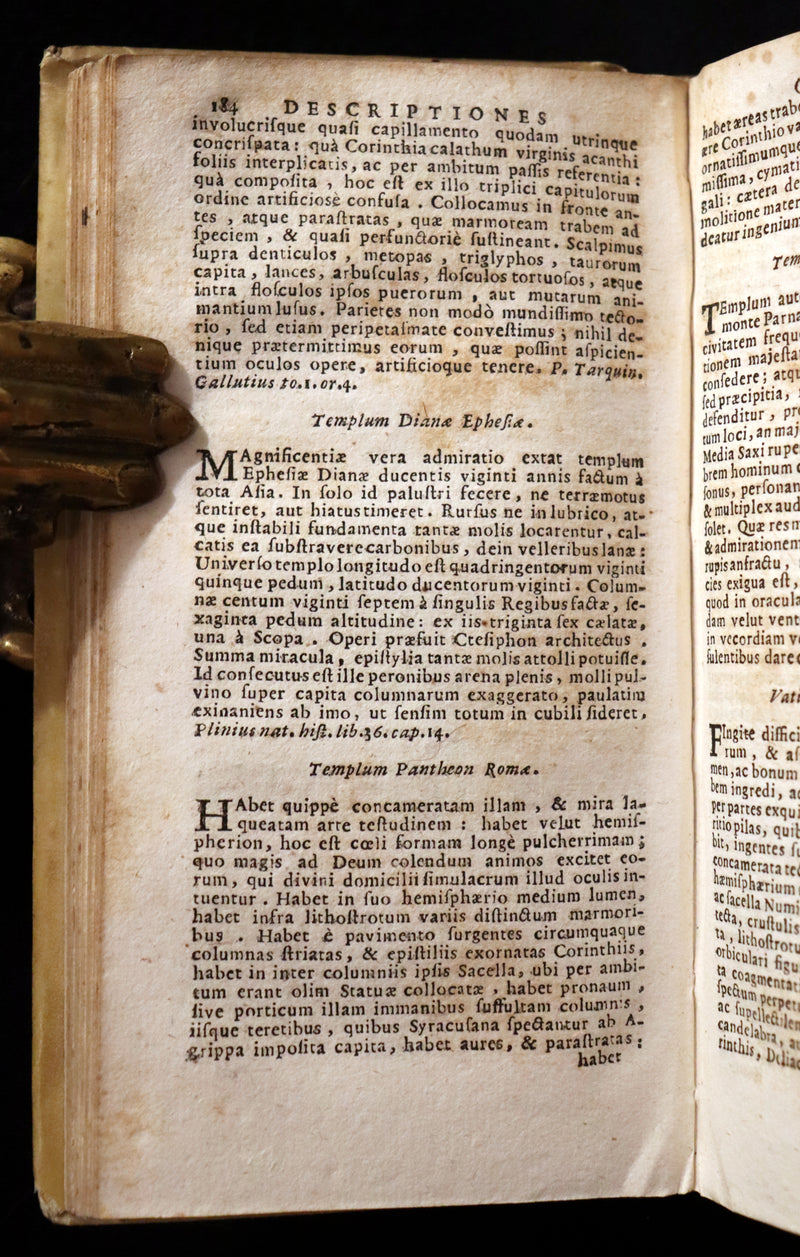 184 DESCRIPTIONES
involucrifque quaſi capillamento quodam utrinque
concriſpata: quà Corinthia calathum virginis acanthi
foliis interplicatis, ac per ambitum paſſis referentia:
quà compoſita, hoc eſt ex illo triplici capitulorum
ordine artificiosè confuſa. Collocamus in fronte an-
tes, atque paraſtratas, quæ marmoream trabem ad
ſpeciem, & quaſi perfunctoriè ſuſtineant. Scalpimus
ſupra denticulos, metopas, triglyphos, taurorum
capita, lances, arbuſculas, floſculos tortuoſos, atque
intra floſculos ipſos puerorum, aut mutarum ani-
mantium luſus. Parietes non modò mundiſſimo tecto-
rio, ſed etiam peripetaſmate conveſtimus; nihil de-
nique prætermittimus eorum, quæ poſſint aſpicien-
tium oculos opere, artificioque tenere. P. Tarquin.
Gallutius to.1. or.4.
Templum Dianæ Epheſiæ.
MAgnificentiæ vera admiratio extat templum
Epheſiæ Dianæ ducentis viginti annis factum à
tota Aſia. In ſolo id paluſtri fecere, ne terræmotus
ſentiret, aut hiatus timeret. Rurſus ne in lubrico, at-
que inſtabili fundamenta tantæ molis locarentur, cal-
catis ea ſubſtravere carbonibus, dein velleribus lanæ:
Univerſo templo longitudo eſt quadringentorum viginti
quinque pedum, latitudo ducentorum viginti. Colum-
næ centum viginti ſeptem à ſingulis Regibus factæ, ſe-
xaginta pedum altitudine: ex iis triginta ſex cælatæ,
una à Scopa. Operi præfuit Cteſiphon architectus.
Summa miracula, epiſtylia tantæ molis attolli potuiſſe.
Id conſecutus eſt ille peronibus arena plenis, molli pul-
vino ſuper capita columnarum exaggerato, paulatim
exinaniens ab imo, ut ſenſim totum in cubili ſideret,
Plinius nat. hiſt. lib.36. cap.14.
Templum Pantheon Romæ.
HAbet quippè concameratam illam, & mira la-
queatam arte teſtudinem: habet velut hemiſ-
pherion, hoc eſt cœli formam longè pulcherrimam;
quo magis ad Deum colendum animos excitet eo-
rum, qui divini domicilii ſimulacrum illud oculis in-
tuentur. Habet in ſuo hemiſphærio medium lumen,
habet infra lithoſtrotum variis diſtinctum marmori-
bus. Habet è pavimento ſurgentes circumquaque
columnas ſtriatas, & epiſtiliis exornatas Corinthiis,
habet in inter columniis ipſis Sacella, ubi per ambi-
tum erant olim Statuæ collocatæ, habet pronaum,
ſive porticum illam immanibus ſuffultam columnis,
iiſque teretibus, quibus Syracuſana ſpectantur ab A-
grippa impoſita capita, habet aures, & paraſtratas:
habet
habet æreas trab
ære Corinthio va
ornatiſſimumque
miſſima, cymati
gali: cætera de
molitione mater
deatur ingenium
Tem
TEmplum aut
monte Parna
civitatem frequ
tionem majeſta
confedere; atqu
ſed præcipitia,
defenditur, pr
tum loci, an maj
Media Saxi rupe
brem hominum c
ſonus, perſonan
& multiplex aud
ſolet. Quæ res n
& admirationem
rupis anfractu,
cies exigua eſt,
quod in oracula
dam velut vent
in vecordiam v
ſulentibus dare
Vati
FIngite diffici
rum, & aſ
men, ac bonum
bem ingredi, a
per partes exqui
pilas, quib
bit, ingentes ſ
concamerata te
hæmiſphærium
ac ſacella Numi
tecta, cruſtulis
ta, lithoſtrotu
orbiculari figu
ta coagmentat
ſpectum perpet
ac ſupellect
candelabra, a
rinthis, Deliac